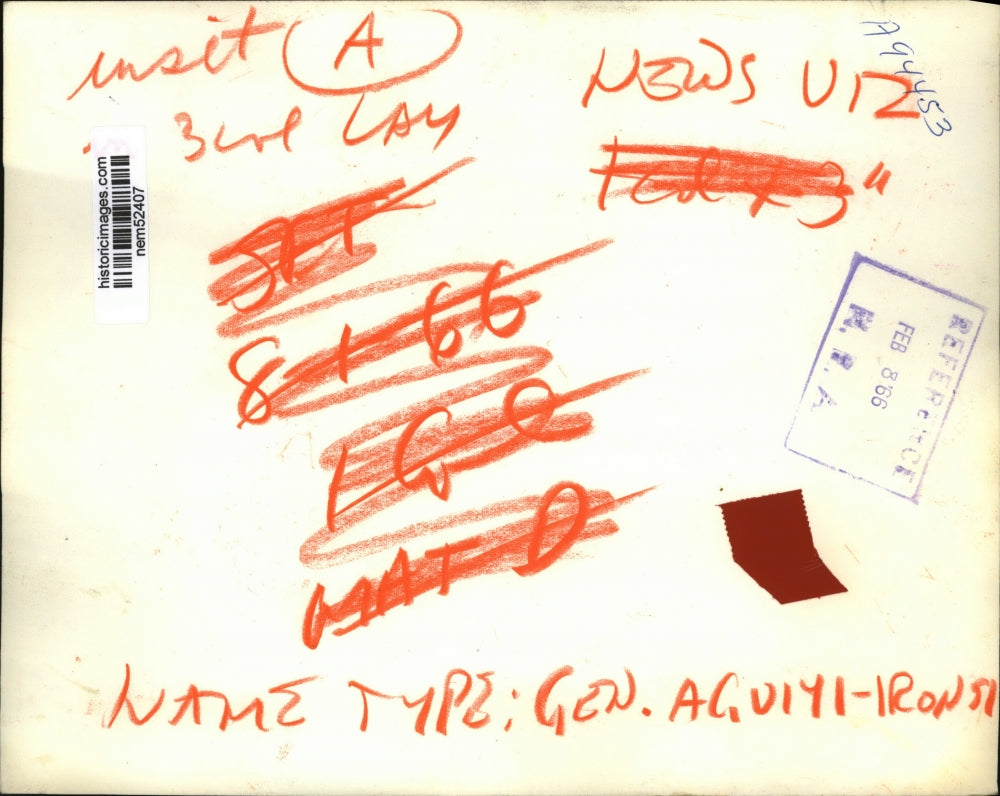 insit A
3 col LAY
NEWS UTZ
A94453
historicimages.com
nem52407
1 col x 3"
8 + 66
MAT D
REFERENCE
FEB 8 '66
NAME TYPE: GEN. AGUIYI-IRONSI